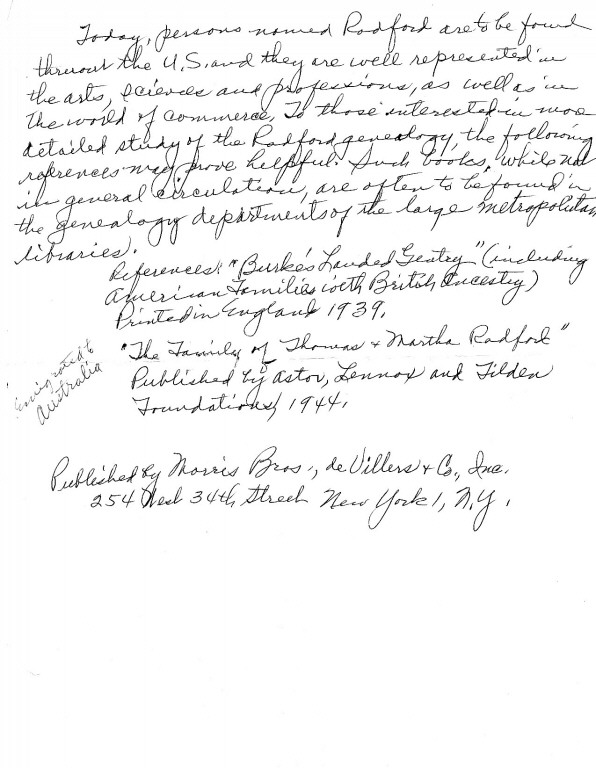 Today, persons named Radford are to be found
thruout the U.S. and they are well represented in
the arts, sciences and professions, as well as in
the world of commerce. To those interested in more
detailed study of the Radford genealogy, the following
references may prove helpful. Such books, while not
in general circulation, are often to be found in
the genealogy departments of the large metropolitan
libraries.
References: "Burke's Landed Gentry" (including
American Families with British Ancestry)
Printed in England 1939.
"The Family of Thomas + Martha Radford"
Published by Astor, Lennox and Tilden
Foundations, 1944.
Emigrated to
Australia
Published by Morris Bros., de Villers + Co., Inc.
254 West 34th Street New York 1, N.Y.